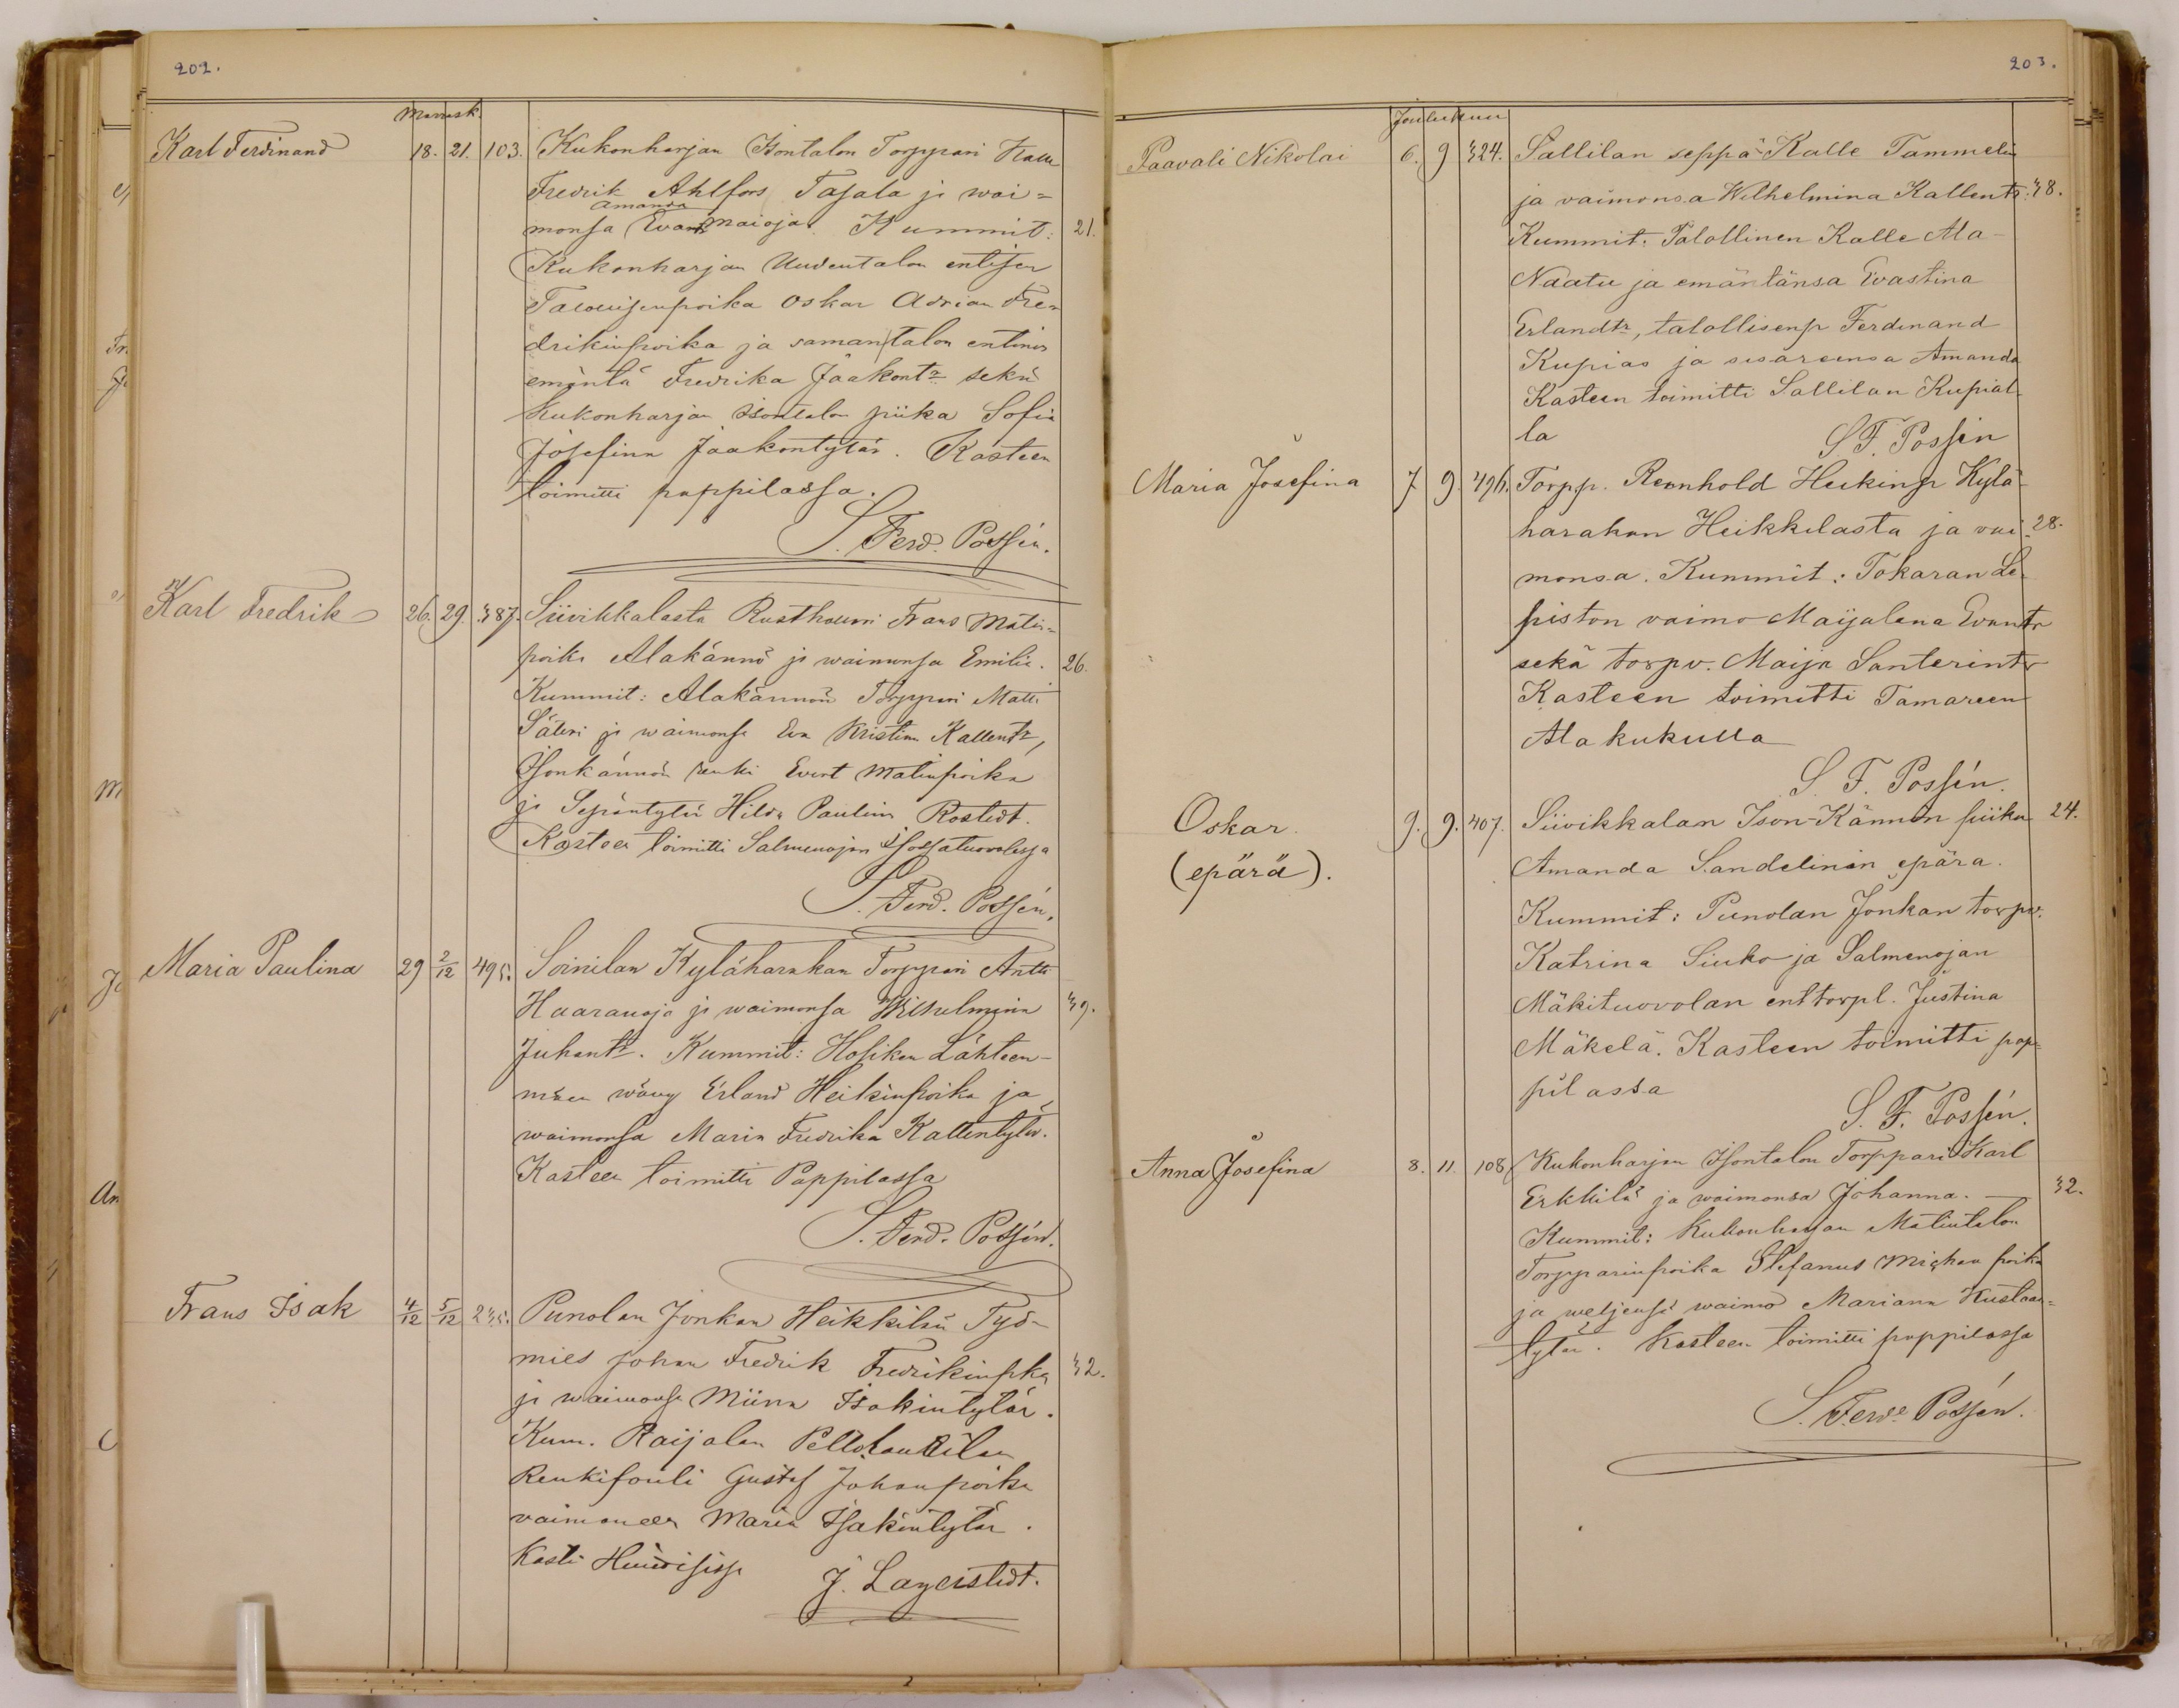 202.
Marrask.
Karl Ferdinand 18. 21. 103. Kukonharjan Isontalon Torppari Kalle
Fredrik Ahlfors Tasala ja wai=
Amanda
monsa Evan Maioja. Kummit: 21.
Kukonharjan Uudentalon entisen
Talollisenpoika Oskar Adrian Fre=
drikinpoika ja samantalon entinen
emäntä Fredrika Jaakontr sekä
Kukonharjan Isontalon piika Sofia
Josefina Jaakontytär. Kasteen
toimitti pappilassa.
S. Ferd. Possén.
Karl Fredrik 26. 29. 387. Siivikkalasta Rusthollari Frans Matin=
poika Alakännö ja waimonsa Emilia. 26.
Kummit: Alakännön Torppari Matti
Säteri ja waimonsa Eva Kristina Kallentr,
Isonkännön renki Evert Matinpoika
ja Sepäntytär Hilda Paulina Rostedt.
Kasteen toimitti Salmenojan
S. Ferd. Possén.
Maria Paulina 29 2/12 495. Soinilan Kyläharakan Torppari Antti
Haaranoja ja waimonsa Wilhelmina 39.
Juhantr. Kummit: Hosikan Lähteen-
mäen wäwy Erland Heikinpoika ja
waimonsa Maria Fredrika Kallentytär.
Kasteen toimitti Pappilassa
S. Ferd. Possén.
Frans Isak 4/12 5/12 235. Punolan Jonkan Heikkilän Työ-
mies Johan Fredrik Fredrikinpka 32.
ja waimonsa Miina Isakintytär.
Kum. Raijalan
Renkifouli Gustaf Johanpoika
vaimoneen Maria Isakintytär.
Kasti
J. Lagerstedt.
203.
Joulukuu
Paavali Nikolai 6. 9 324. Sallilan seppä Kalle Tammelin
ja vaimonsa Wilhelmina Kallentr. 38.
Kummit: Talollinen Kalle Ala-
Näätu ja emäntänsä Evastina
Erlandtr, talollisenp Ferdinand
Kupias ja sisarensa Amanda
Kasteen toimitti Sallilan Kupial-
la
S. F. Possén
Maria Josefina 7 9. 496. Torpp. Reinhold Heikinp Kylä-
harakan Heikkilasta ja vai- 28.
monsa. Kummit: Tokaran Le-
piston vaimo Maijalena Evantr
sekä torpv. Maija Santerintr
Kasteen toimitti Tamareen
Alakukulla
S. F. Possén.
Oskar 9. 9. 407. Siivikkalan Ison-Kännön piika 24.
(epärä). Amanda Sandelinin epärä.
Kummit: Punolan Jonkan torpv.
Katrina Siuko ja Salmenojan
Mäkituovolan enttorpl. Justina
Mäkelä. Kasteen toimitti pap=
pilassa
S. F. Possén.
Anna Josefina 8. 11. 108 Kukonharjan Isontalon Torppari Karl
Erkkilä ja waimonsa Johanna. 32.
Kummit: Kukonharjan Matintalon
Torpparinpoika Stefanus poika
ja weljensä waimo Mariana Kustaan=
tytär. Kasteen toimitti pappilassa
S. Ferd. Possén.